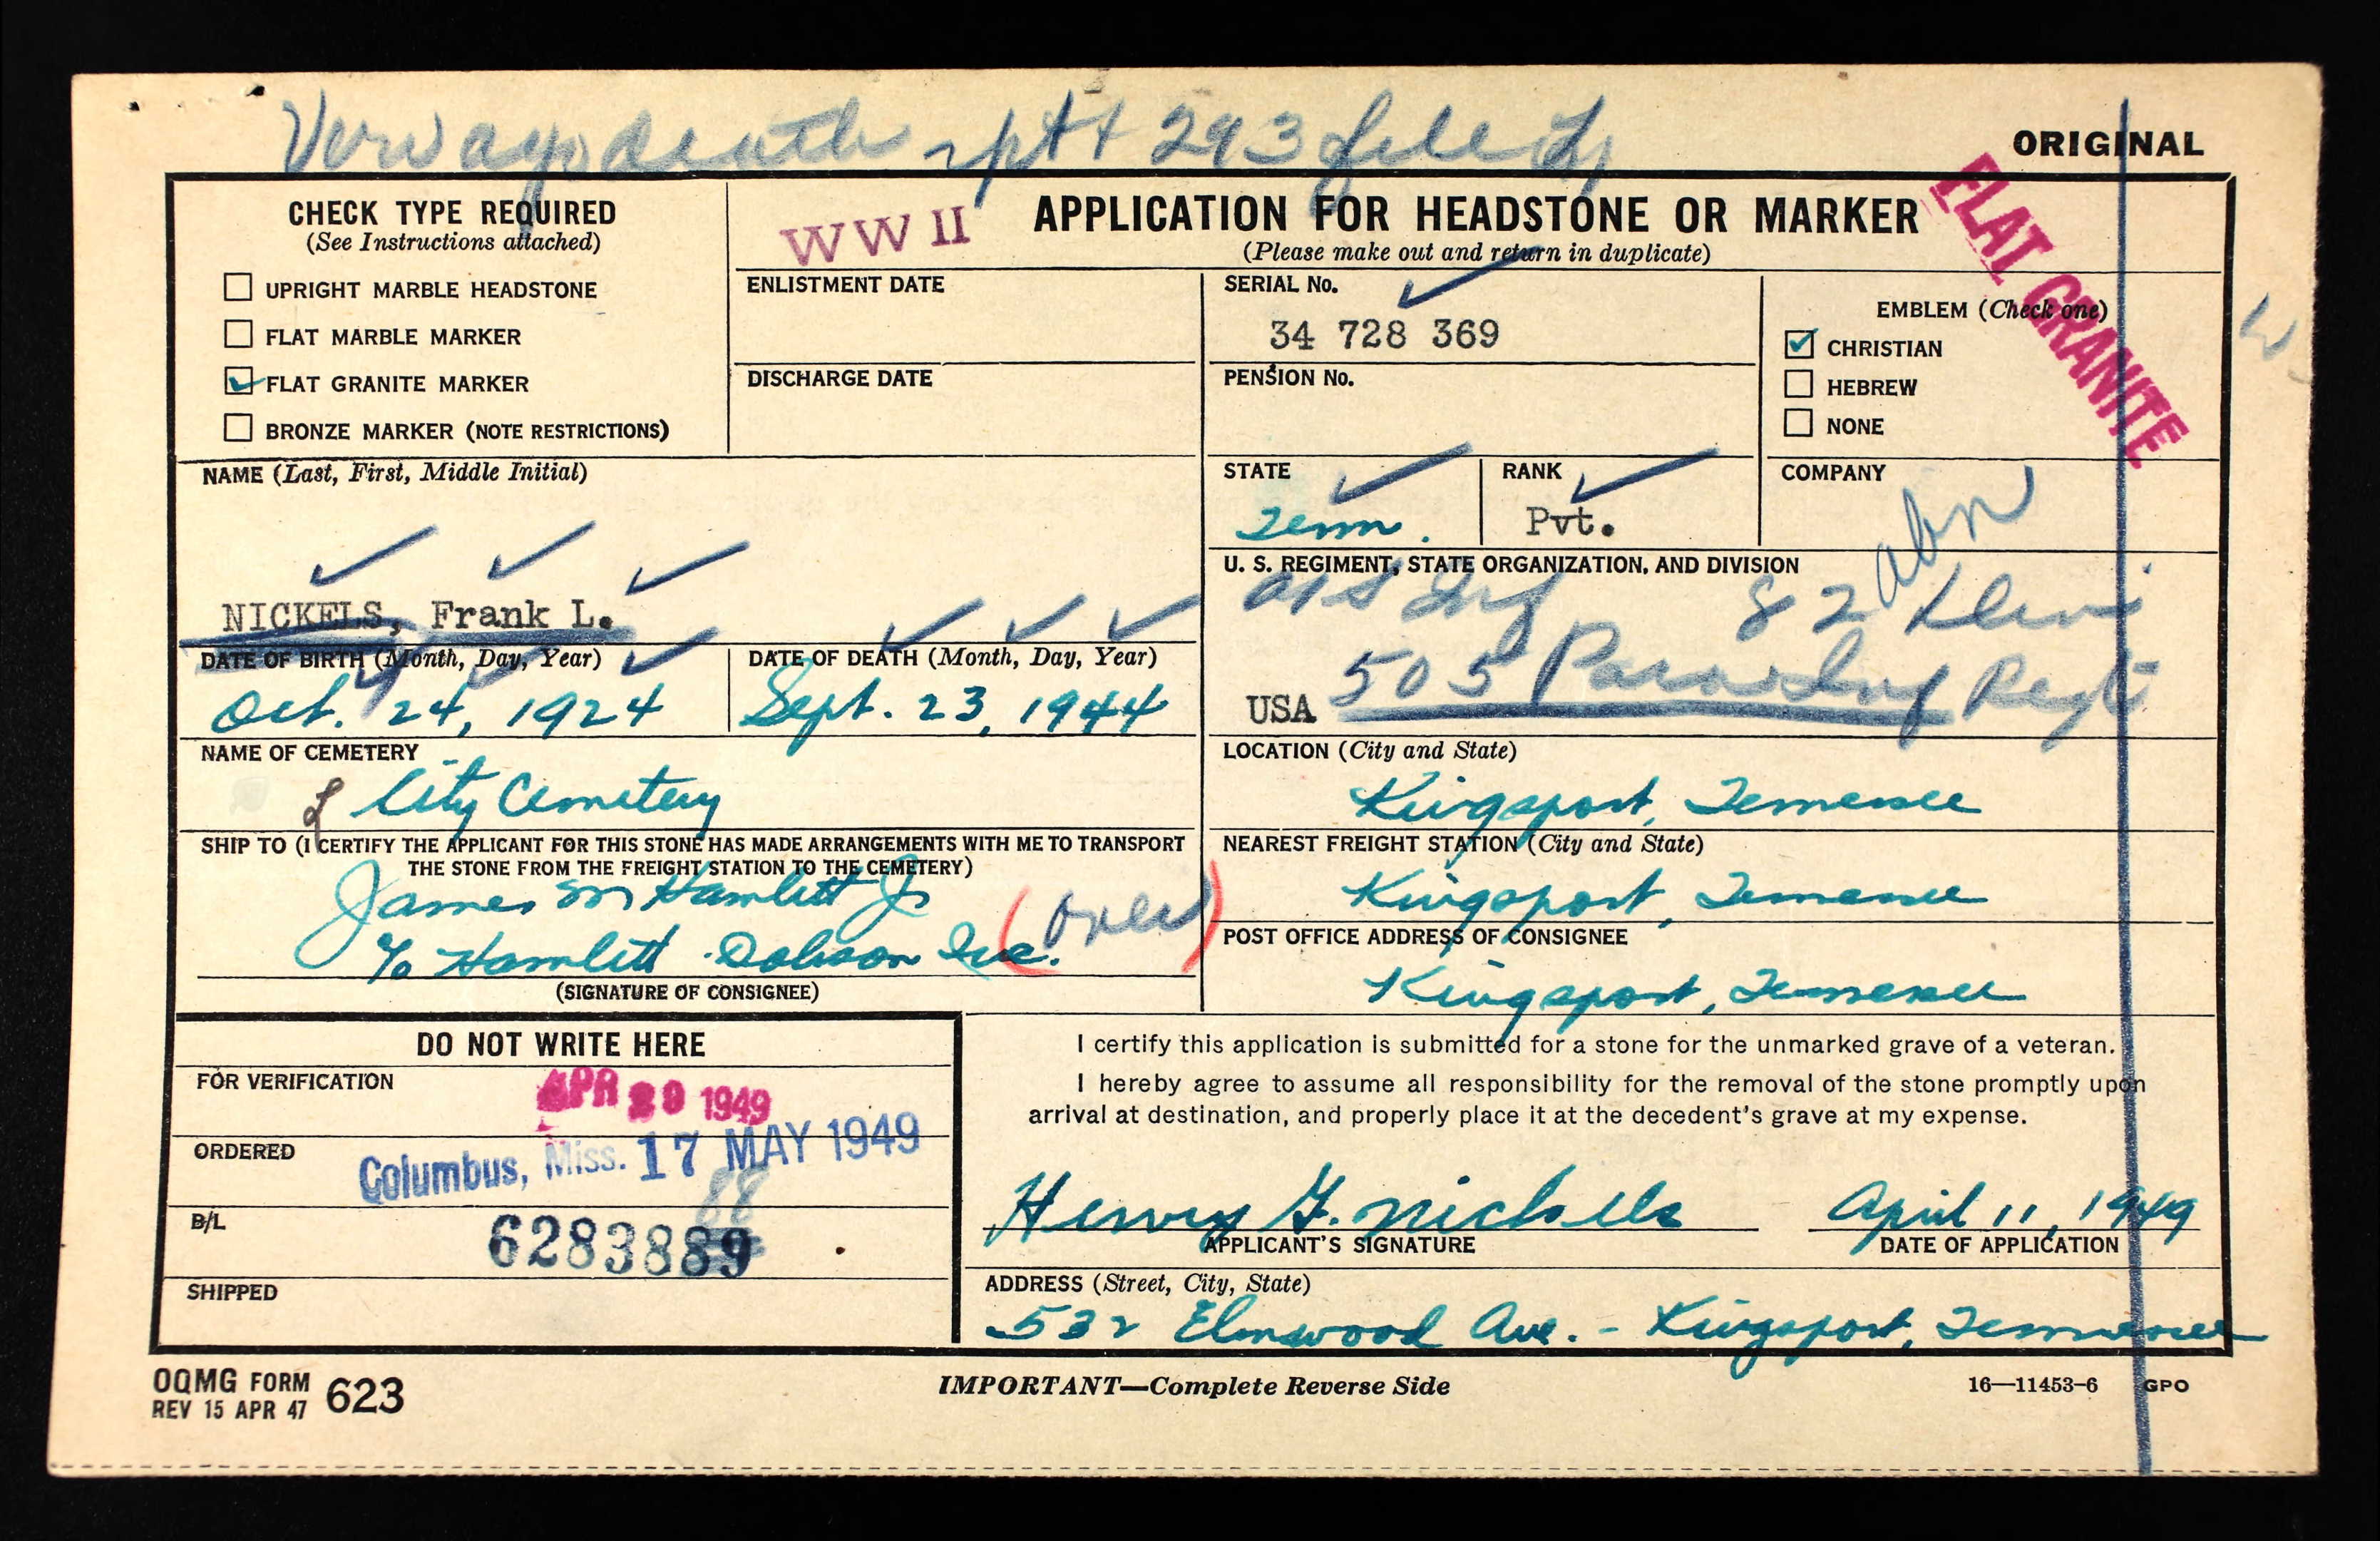 death rptt 293 file
ORIGINAL
CHECK TYPE REQUIRED
(See Instructions attached)
UPRIGHT MARBLE HEADSTONE
FLAT MARBLE MARKER
FLAT GRANITE MARKER
BRONZE MARKER (NOTE RESTRICTIONS)
WW II
APPLICATION FOR HEADSTONE OR MARKER
(Please make out and return in duplicate)
FLAT GRANITE
ENLISTMENT DATE
DISCHARGE DATE
SERIAL No.
34 728 369
PENSION No.
EMBLEM (Check one)
CHRISTIAN
HEBREW
NONE
NAME (Last, First, Middle Initial)
NICKELS, Frank L.
STATE
Tenn.
RANK
Pvt.
COMPANY
U. S. REGIMENT, STATE ORGANIZATION, AND DIVISION
Inf 82 abn Div
USA 505 Para Inf Regt
DATE OF BIRTH (Month, Day, Year)
Oct. 24, 1924
DATE OF DEATH (Month, Day, Year)
Sept. 23, 1944
NAME OF CEMETERY
City Cemetery
LOCATION (City and State)
Kingsport, Tennessee
SHIP TO (I CERTIFY THE APPLICANT FOR THIS STONE HAS MADE ARRANGEMENTS WITH ME TO TRANSPORT
THE STONE FROM THE FREIGHT STATION TO THE CEMETERY)
James M Hamlett Jr
c/o Hamlett Dobson Inc. (over)
(SIGNATURE OF CONSIGNEE)
NEAREST FREIGHT STATION (City and State)
Kingsport, Tennessee
POST OFFICE ADDRESS OF CONSIGNEE
Kingsport, Tennessee
DO NOT WRITE HERE
FOR VERIFICATION
APR 20 1949
ORDERED
Columbus, Miss. 17 MAY 1949
88
B/L
6283889
SHIPPED
I certify this application is submitted for a stone for the unmarked grave of a veteran.
I hereby agree to assume all responsibility for the removal of the stone promptly upon
arrival at destination, and properly place it at the decedent's grave at my expense.
Henry G. Nickels
April 11, 1949
APPLICANT'S SIGNATURE
DATE OF APPLICATION
ADDRESS (Street, City, State)
532 Elmwood Ave. - Kingsport, Tennessee
OQMG FORM 623
REV 15 APR 47
IMPORTANT—Complete Reverse Side
16—11453-6 GPO